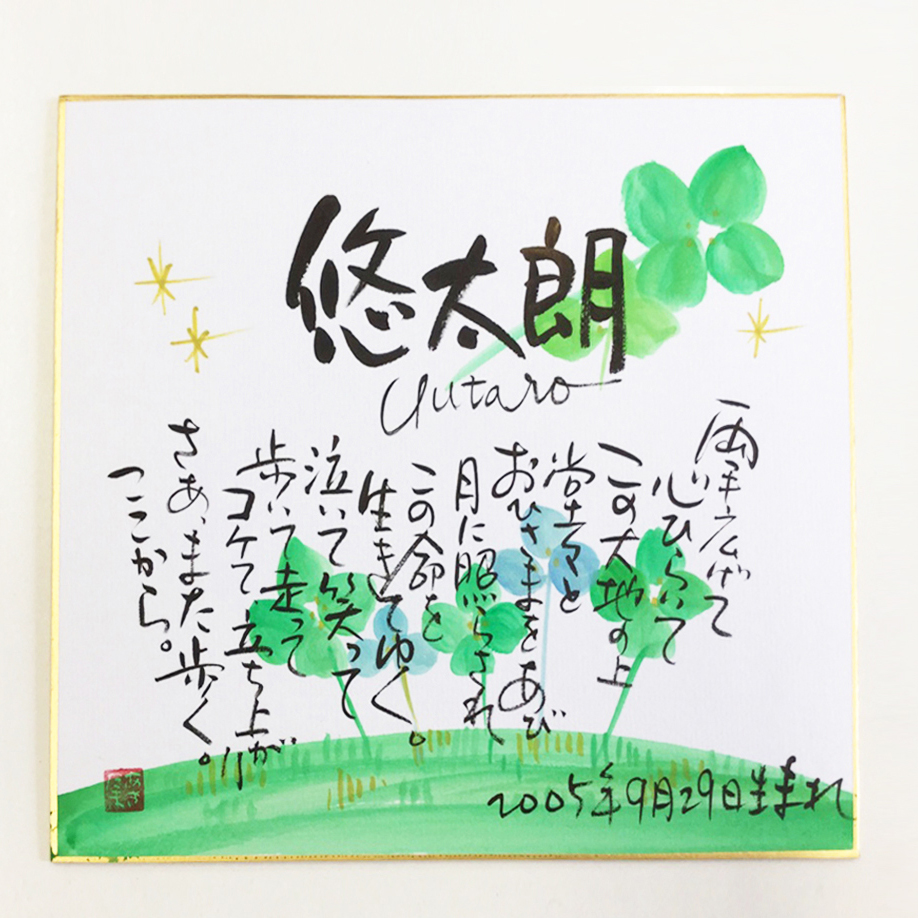 悠太朗
Yutaro
両手広げて
心ひらいて
この大地の上
堂々と
おひさまをあび
月に照らされ
この命を
生きてゆく。
泣いて笑って
歩いて走って
コケて立ち上がり
さあ、また歩く。
ここから。
2005年9月29日生まれ